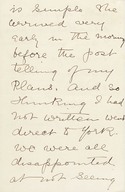 is simple. She
arrived very
early in the morning
before the post
telling of my
Plans. And so
thinking I had
not written went
direct to York.
We were all
disappointed
at not seeing